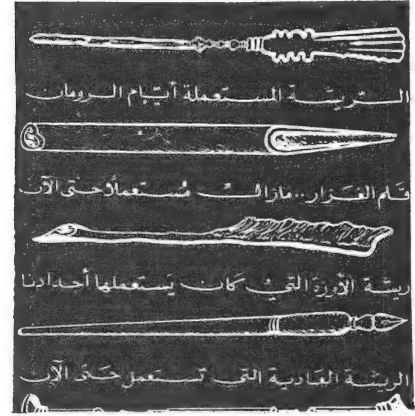 الـتريشـة المستعملة أيّـام الـرومان
قـلم الغـزار..مازالـت مُستعملاً حتى الآن
ريشـة الأوزة التي كَانت يَستعملها أجدادنا
الريشـة العـادية التي تسـتعمل حـتى الآن